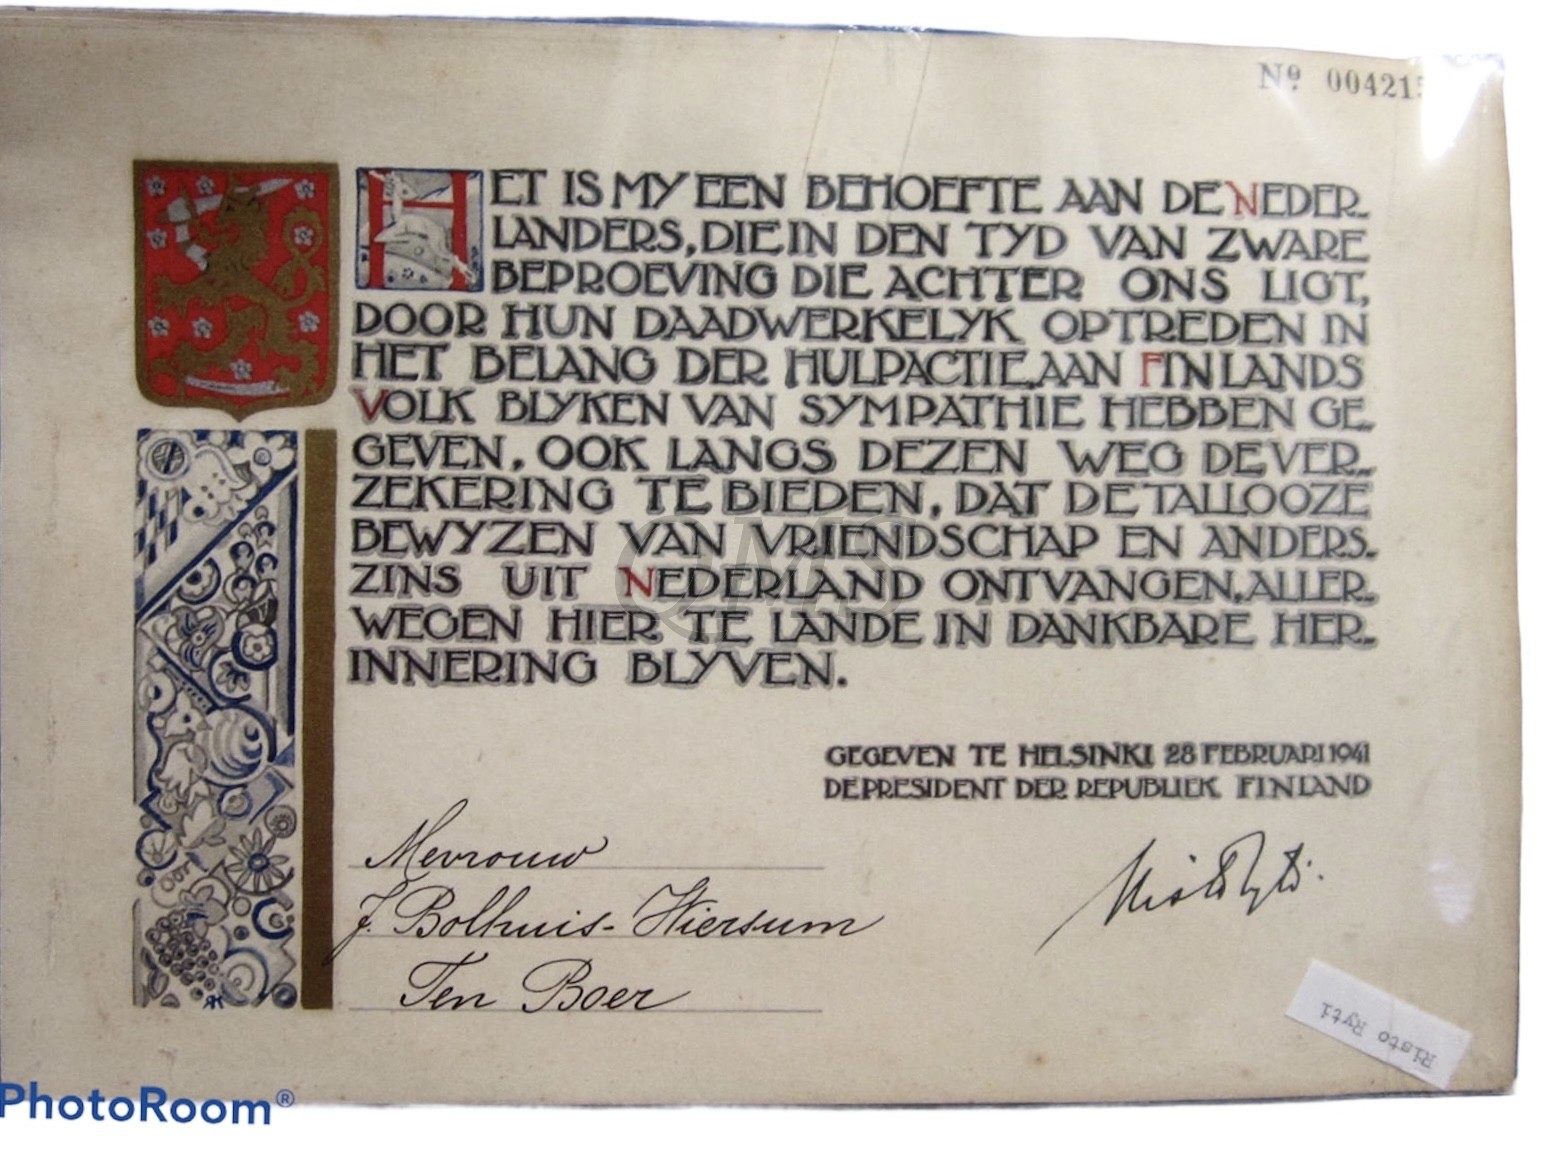 Nº 00421
HET IS MY EEN BEHOEFTE AAN DE NEDER-
LANDERS, DIE IN DEN TYD VAN ZWARE
BEPROEVING DIE ACHTER ONS LIGT,
DOOR HUN DAADWERKELYK OPTREDEN IN
HET BELANG DER HULPACTIE AAN FINLANDS
VOLK BLYKEN VAN SYMPATHIE HEBBEN GE-
GEVEN, OOK LANGS DEZEN WEG DE VER-
ZEKERING TE BIEDEN, DAT DE TALLOOZE
BEWYZEN VAN VRIENDSCHAP EN ANDERS-
ZINS UIT NEDERLAND ONTVANGEN, ALLER-
WEGEN HIER TE LANDE IN DANKBARE HER-
INNERING BLYVEN.
GEGEVEN TE HELSINKI 28 FEBRUARI 1941
DE PRESIDENT DER REPUBLIEK FINLAND
Mevrouw
J. Bolhuis-Wiersum
Ten Boer
Risto Ryti
Risto Ryti
PhotoRoom®